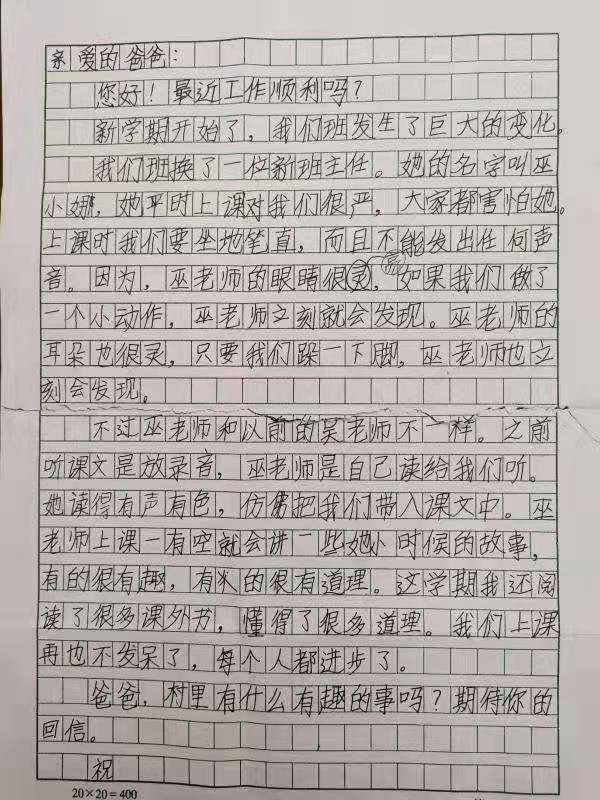 亲爱的爸爸：
您好！最近工作顺利吗？
新学期开始了，我们班发生了巨大的变化。
我们班换了一位新班主任。她的名字叫巫
小娜，她平时上课对我们很严，大家都害怕她。
上课时我们要坐地笔直，而且不能发出任何声
音。因为，巫老师的眼睛很灵，如果我们做了
一个小动作，巫老师立刻就会发现。巫老师的
耳朵也很灵，只要我们跺一下脚，巫老师也立
刻会发现。
不过巫老师和以前的吴老师不一样。之前
听课文是放录音，巫老师是自己读给我们听。
她读得有声有色，仿佛把我们带入课文中。巫
老师上课一有空就会讲一些她小时候的故事，
有的很有趣，有的很有道理。这学期我还阅
读了很多课外书，懂得了很多道理。我们上课
再也不发呆了，每个人都进步了。
爸爸，村里有什么有趣的事吗？期待你的
回信。
祝
20×20=400